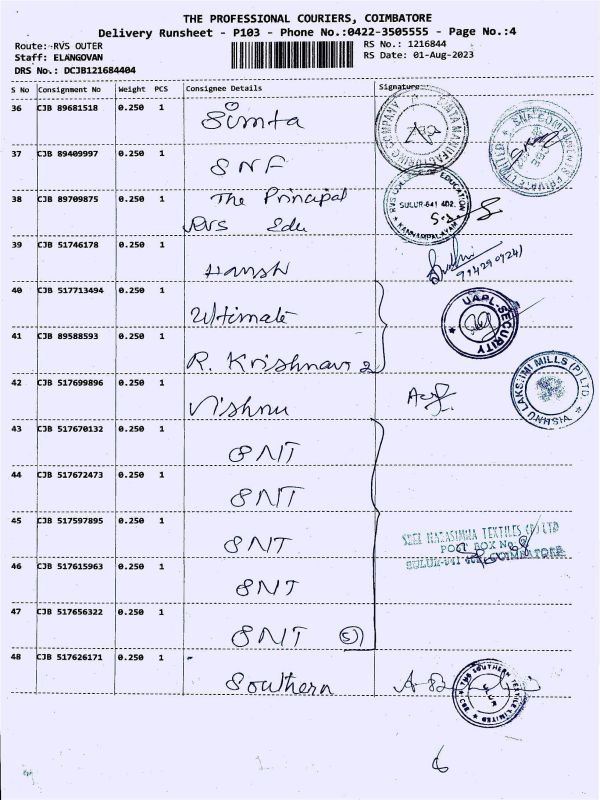 THE PROFESSIONAL COURIERS, COIMBATORE
Delivery Runsheet - P103 - Phone No.:0422-3505555 - Page No.:4
Route:-RVS OUTER RS No.: 1216844
Staff: ELANGOVAN RS Date: 01-Aug-2023
DRS No.: DCJB121684404
S No Consignment No Weight PCS Consignee Details Signature
36 CJB 89681518 0.250 1 Simta
SIMTA MANUFACTURING COMPANY
SNF COMPONENTS PRIVATE LIMITED
37 CJB 89409997 0.250 1 SNF
38 CJB 89709875 0.250 1 The Principal
RVS Edu
RVS COLLEGE OF EDUCATION
SULUR-641 402.
KANNAMPALAYAM
39 CJB 51746178 0.250 1 Harsh
40 CJB 517713494 0.250 1 Ultimate
UAPL-SECURITY
41 CJB 89588593 0.250 1 R. Krishnan 2
42 CJB 517699896 0.250 1 Vishnu
VISHNU LAKSHMI MILLS (P) LTD
43 CJB 517670132 0.250 1 SNT
44 CJB 517672473 0.250 1 SNT
45 CJB 517597895 0.250 1 SNT
SREE NARASIMHA TEXTILES (P) LTD
POST BOX No.
SULUR-641 COIMBATORE
46 CJB 517615963 0.250 1 SNT
47 CJB 517656322 0.250 1 SNT 5)
48 CJB 517626171 0.250 1 Southern